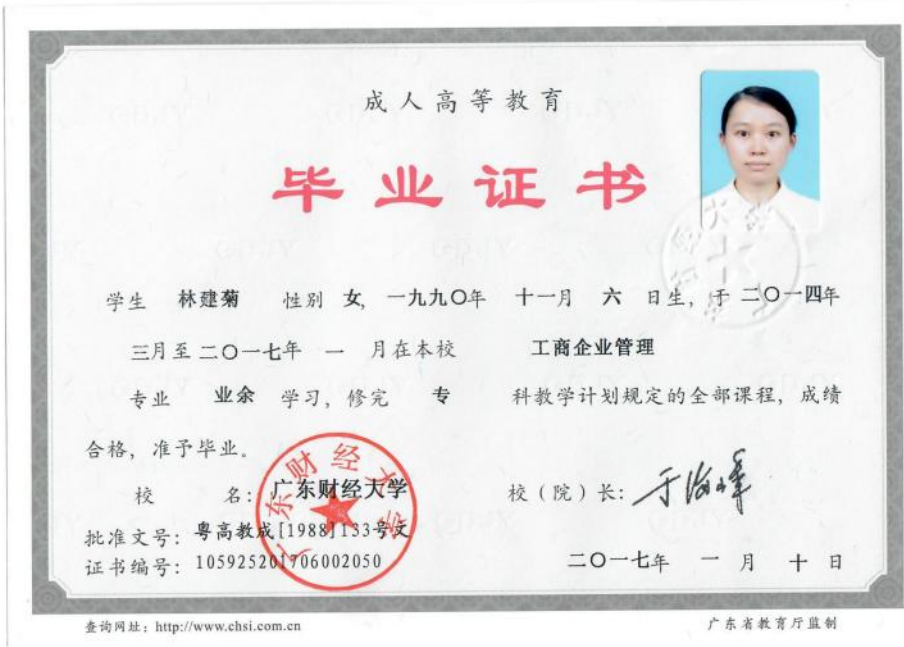 成人高等教育
毕业证书
学生 林建菊 性别 女, 一九九〇年 十一月 六 日生, 于 二〇一四年
三月至二〇一七年 一 月在本校 工商企业管理
专业 业余 学习, 修完 专 科教学计划规定的全部课程, 成绩
合格, 准予毕业。
校 名: 广东财经大学
校（院）长: 于海峰
批准文号: 粤高教成[1988]133号文
证书编号: 105925201706002050
二〇一七年 一 月 十 日
广东财经大学
查询网址: http://www.chsi.com.cn
广东省教育厅监制